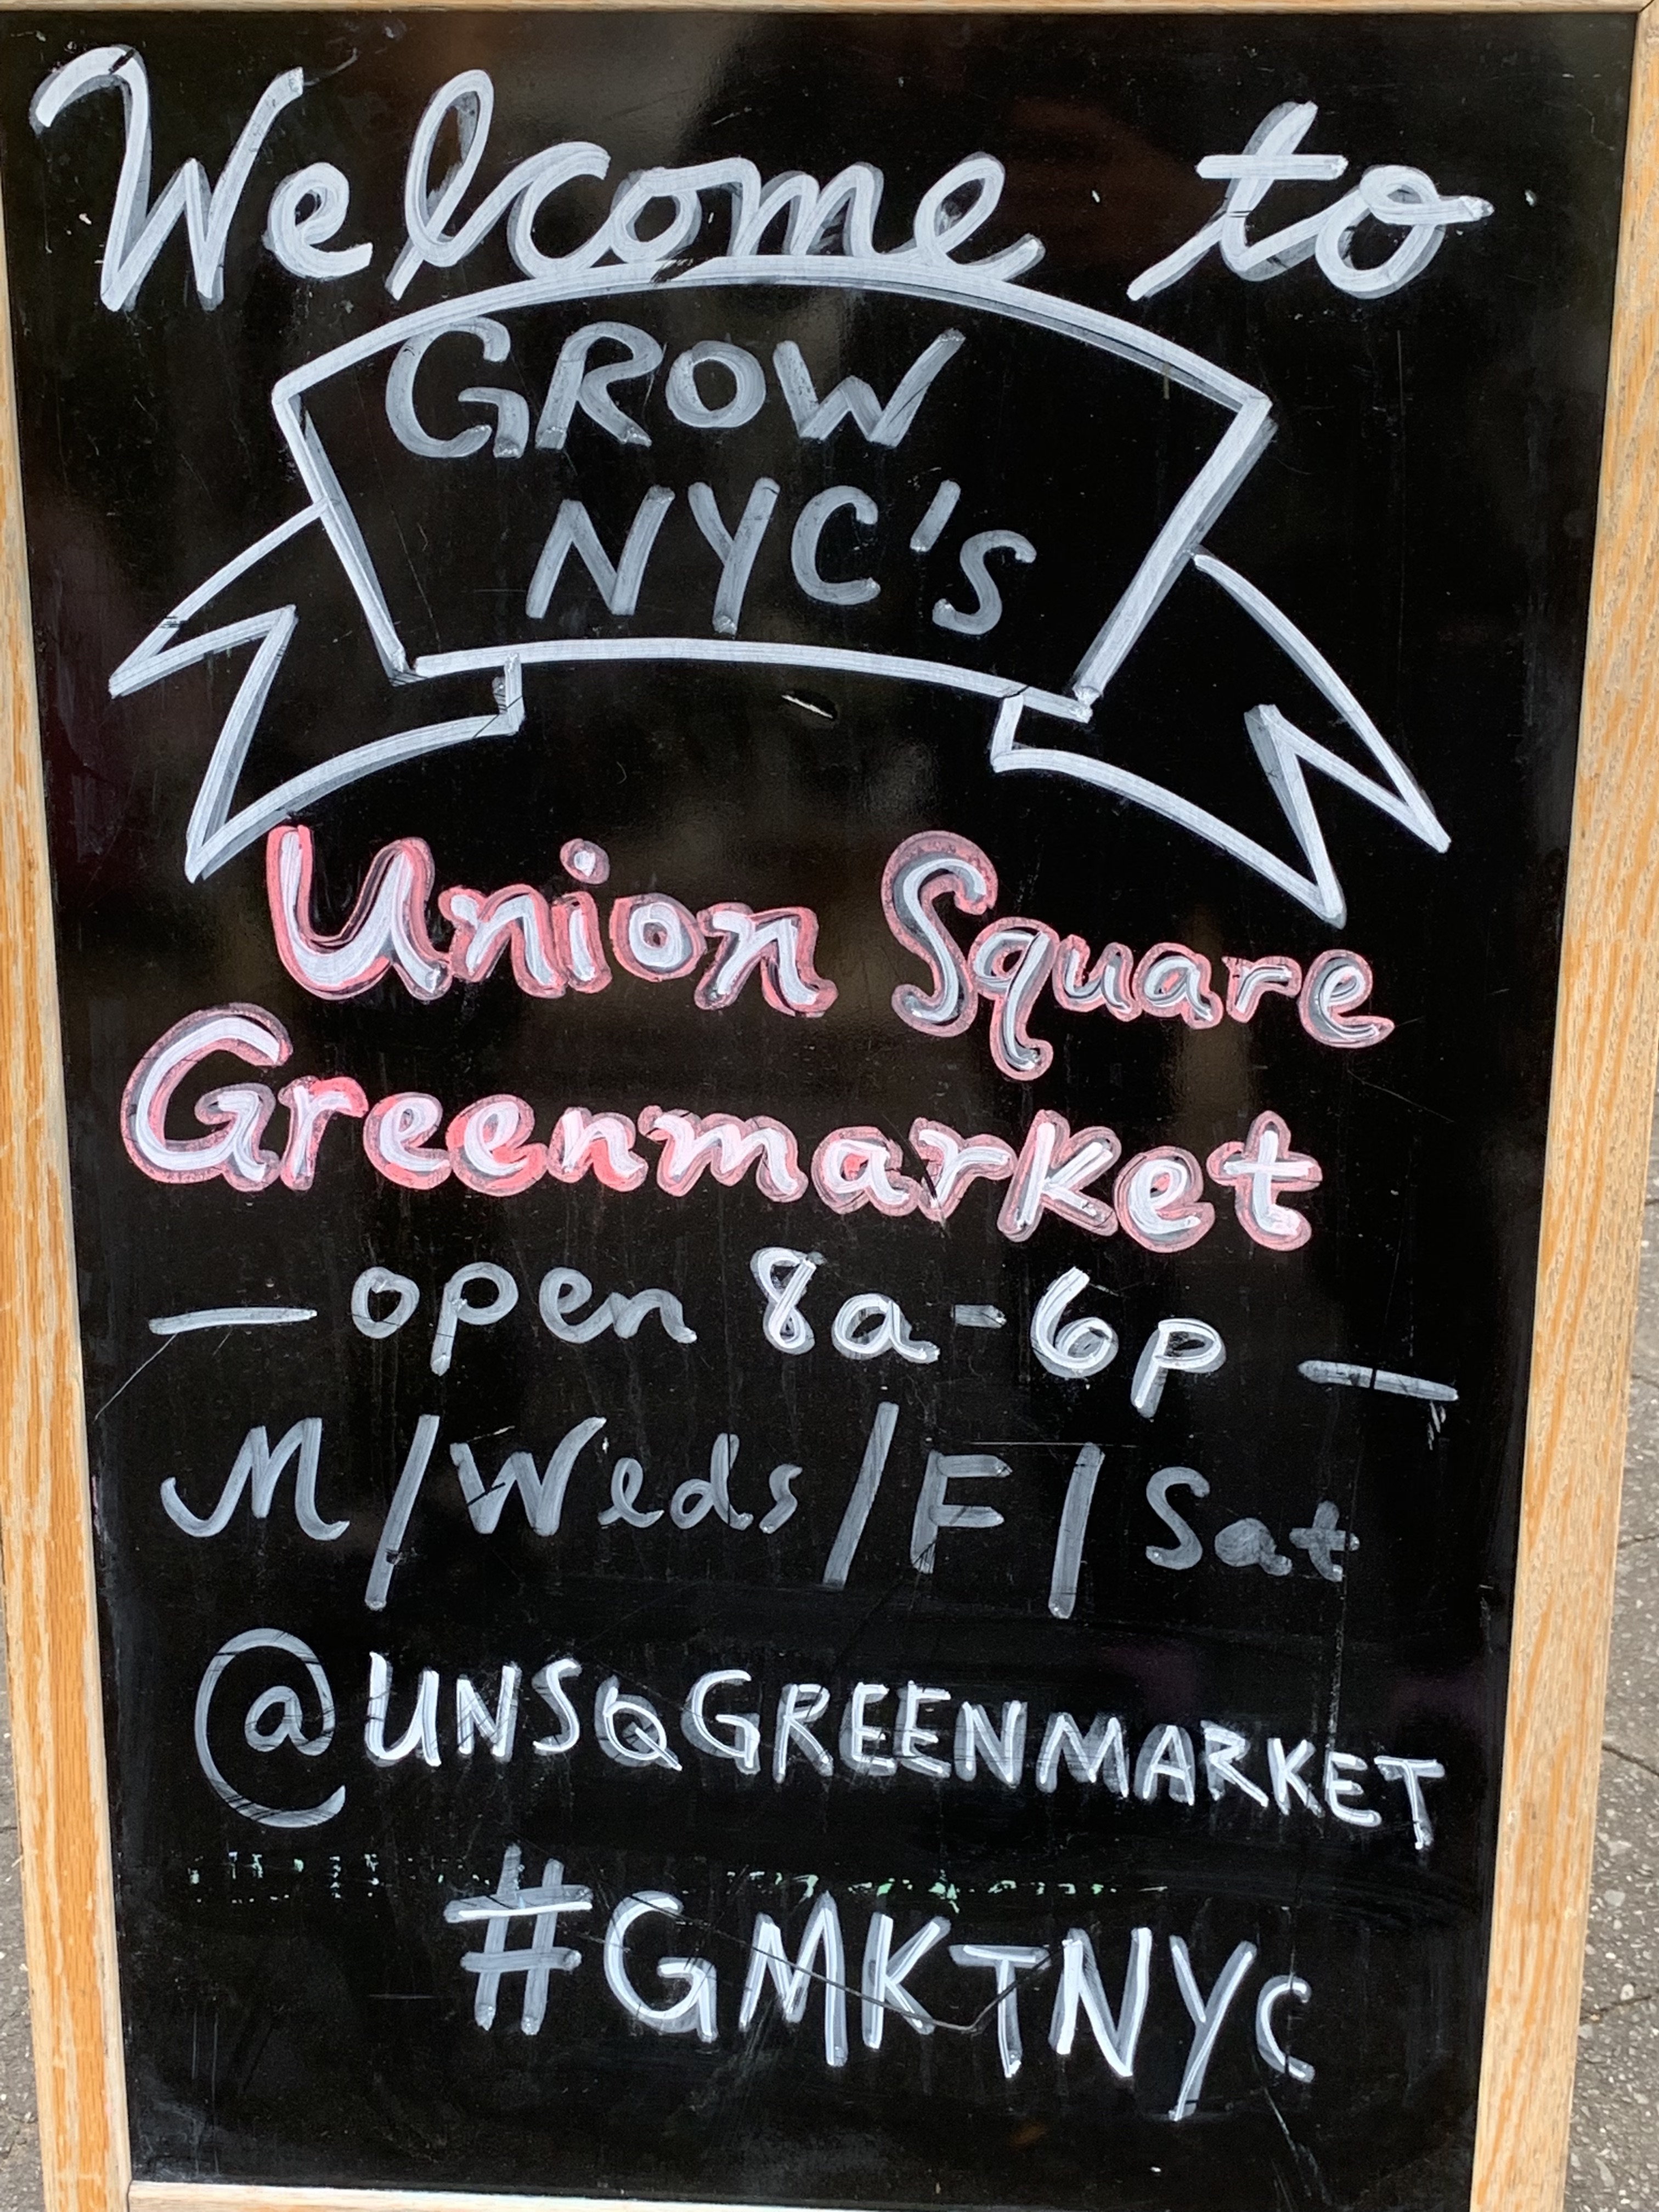 Welcome to
GROW
NYC's
Union Square
Greenmarket
— open 8a-6p —
M/Weds/F/Sat
@UNSQGREENMARKET
#GMKTNYC